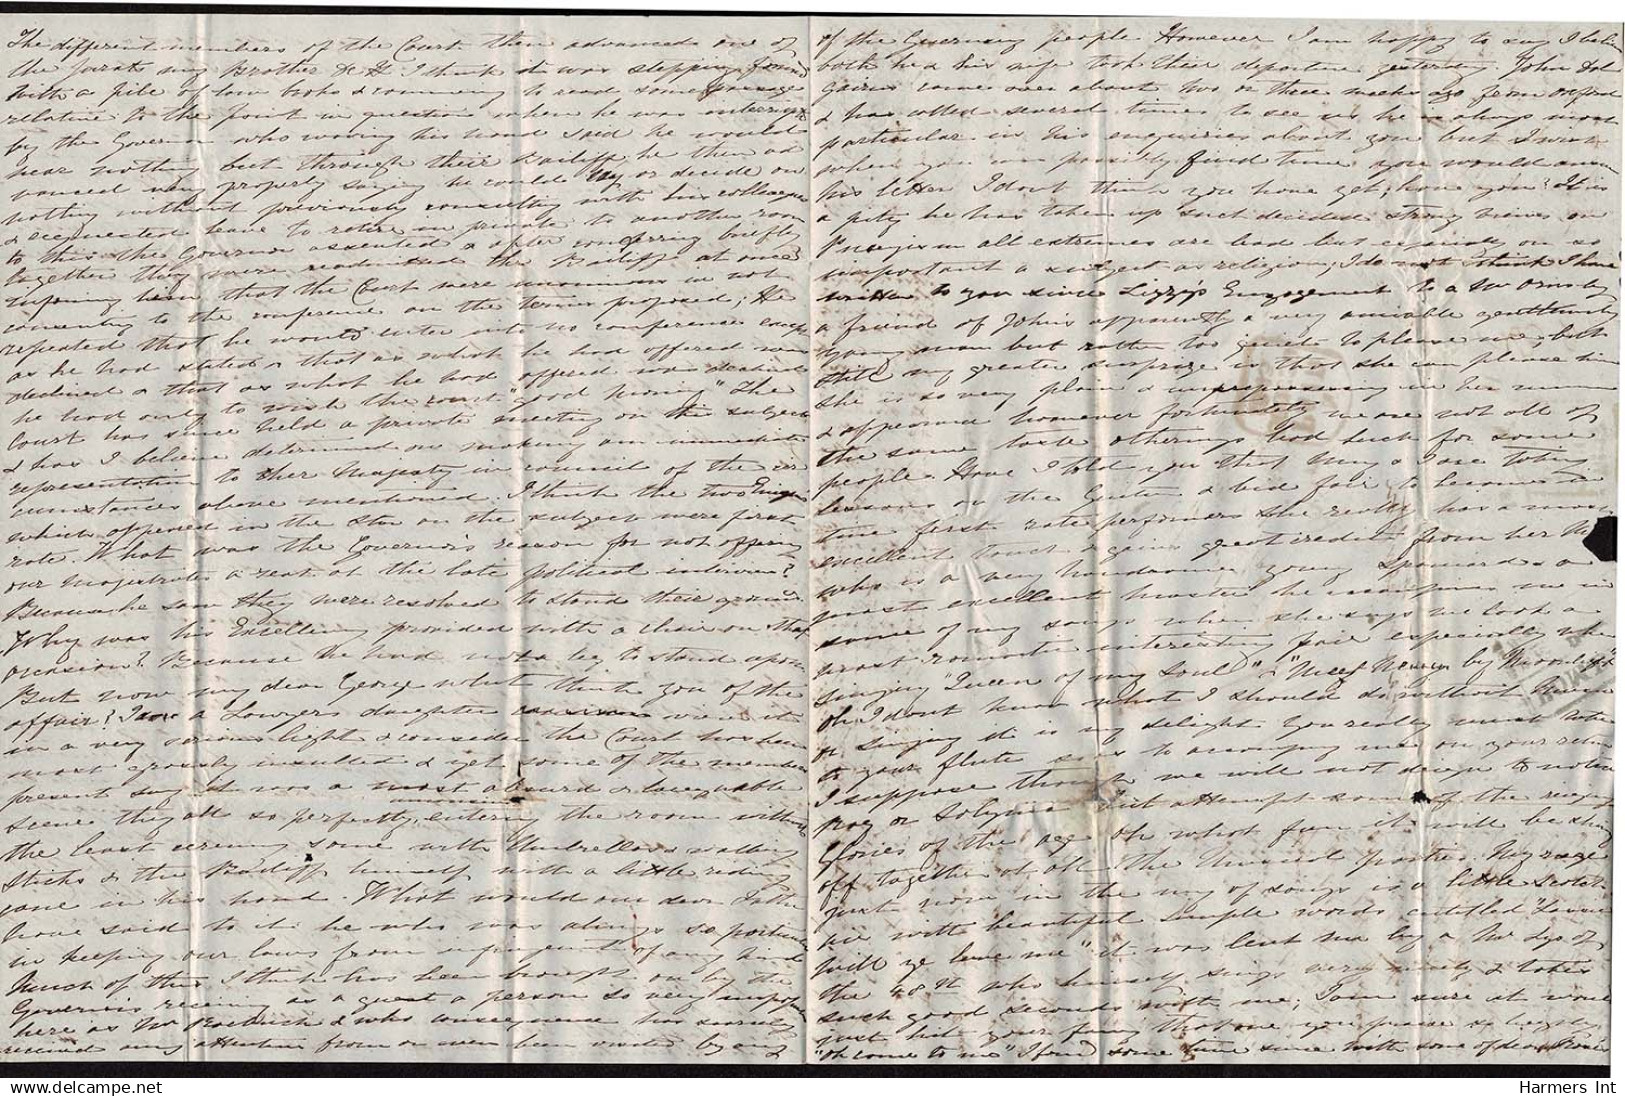 The different members of the Court then advanced one of
the Jurats my Brother & H I think it was stepping forward
with a pile of law books & commencing to read some passage
relative to the point in question when he was interrupted
by the Governor who waving his hand said he would
hear nothing but through their Bailiff, he then ad
vanced very properly saying he could say or decide on
nothing without previously consulting with his colleagues
& requested leave to retire in private to another room
to this the Governor assented & after conferring briefly
together they were readmitted the Bailiff at once
informing him that the Court were unanimous in not
consenting to the conference on the terms proposed; He
repeated that he would enter into no conference except
as he had stated & that as what he had offered was
declined & that as what he had offered was declined
he had only to wish the court "good morning" The
Court has since held a private meeting on the subject
& has I believe determined on making an immediate
representation to Her Majesty in council of the cir
cumstances above mentioned. I think the two
which appeared in the Star on the subject were first
rate. What was the Governor's reason for not offering
our Magistrates a seat at the late political interview?
Because he saw they were resolved to stand their ground.
Why was his Excellency provided with a chair on that
occasion? Because he had not a leg to stand upon
But now my dear George what think you of the
affair? I as a Lawyers daughter view it
in a very serious light & consider the Court has been
most grossly insulted & yet some of the members
present say it was a most absurd & laughable
scene they all so perfectly unanimous entering the room without
the least ceremony some with Umbrellas & walking
sticks & the Bailiff himself with a little riding
cane in his hand. What would our dear Father
have said to it he who was always so particular
in keeping our laws from infringement of any kind
Much of this I think has been brought on by the
Governor's receiving as a guest a person so very unpopular
here as Mr Roebuck & who consequence has scarcely
received any attention from or even been visited by any
of the Guernsey people However I am happy to say I believe
both he & his wife took their departure yesterday. John Dal
gairns came over about two or three weeks ago from Oxford
& has called several times to see us he is always most
particular in his enquiries about you but I wish
when you can possibly find time you would answer
his letter I dont think you have yet, have you? It is
a pity he has taken up such decided strong views on
Puseyism all extremes are bad but especially on so
important a subject as religion; I do not think I have
written to you since Lizzy's Engagement to a Mr Ormsby
a friend of John's apparently a very amiable gentlemanly
young man but rather too quiet to please me, but
still my greater surprize is that she can please him
She is so very plain & unprepossessing in her manner
& appearance however fortunately we are not all of
the same taste otherwise bad luck for some
people. Have I told you that Mary & I are taking
lessons on the Guitar & bid fair to become in
time first rate performers she really has a most
excellent touch & gains great credit from her
who is a very handsome young Spaniard & a
most excellent master he accompanies me in
some of my songs when she says we look a
most romantic interesting pair especially when
singing "Queen of my Soul" & "Meet Me by Moonlight"
oh I dont know what I should do without Music
or Singing it is my delight. You really must take
to your flute so as to accompany me on your return
I suppose though we will not deign to notice
or but attempt some of the reigning
glories of the age oh what fun it will be
off together at all the Musical parties. My rage
just now in the way of songs is a little Scotch
air with beautiful simple words entitled "Lassie
will ye love me" it was lent me by a Mr of
the 48th who himself sings very nicely & takes
such good seconds with me; I am sure it would
just hit your fancy that one you praise so highly
"oh come to me" I found some time since with some of dear